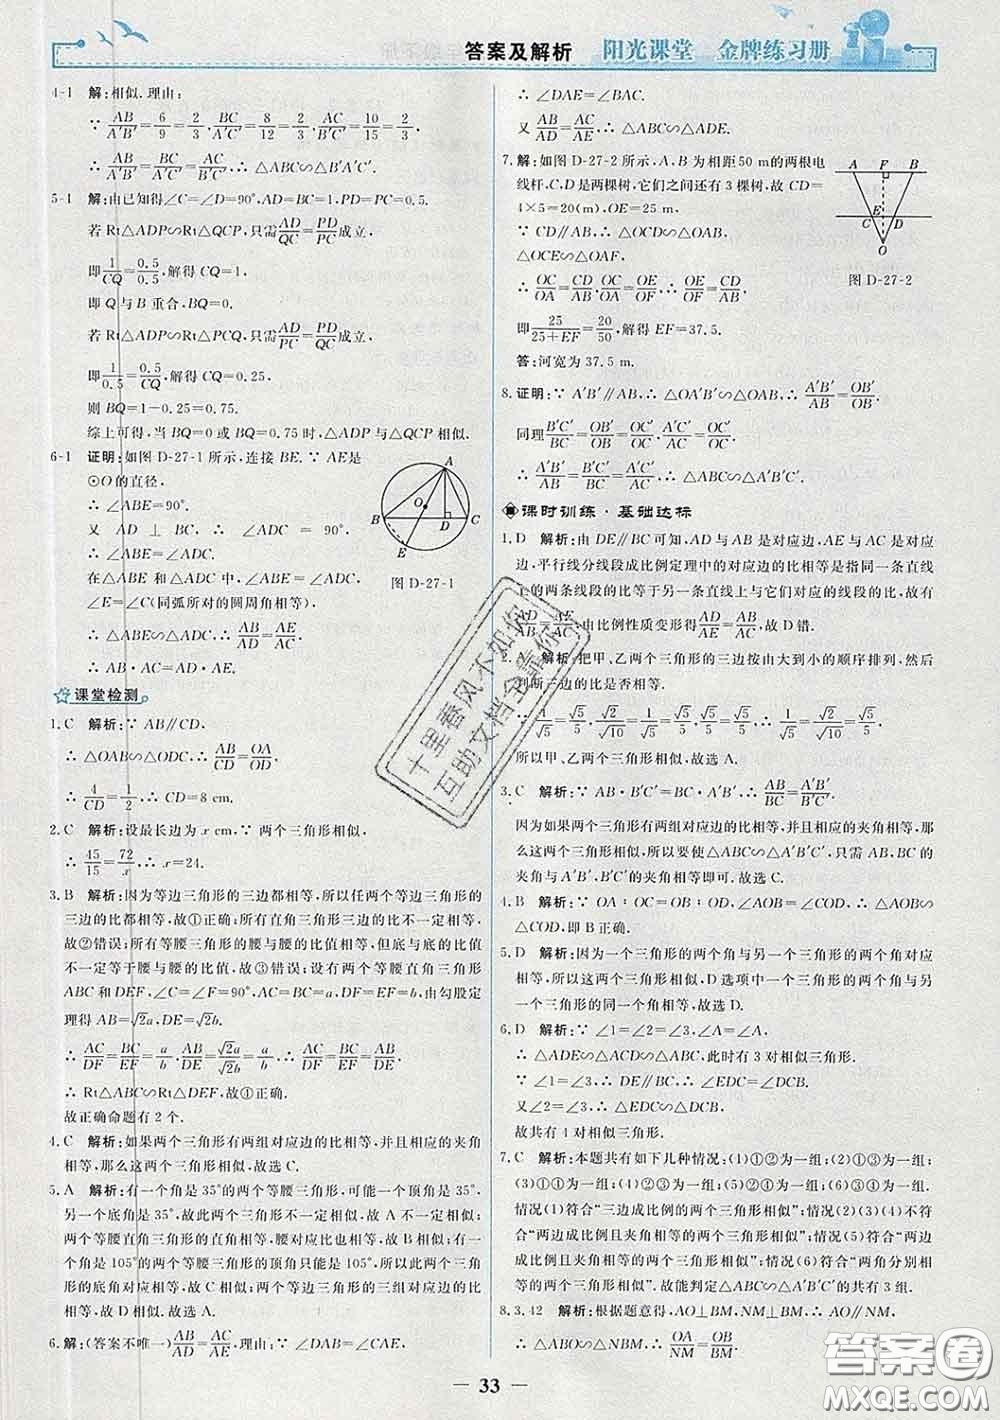 答案及解析 阳光课堂 金牌练习册
4-1 解:相似.理由:
∵ AB/A′B′=6/9=2/3,BC/B′C′=8/12=2/3,AC/A′C′=10/15=2/3,
∴ AB/A′B′=BC/B′C′=AC/A′C′,∴ △ABC∽△A′B′C′.
5-1 解:由已知得∠C=∠D=90°,AD=BC=1,PD=PC=0.5.
若 Rt△ADP∽Rt△QCP,只需AD/QC=PD/PC成立,
即1/CQ=0.5/0.5,解得 CQ=1,
即 Q与B重合,BQ=0.
若 Rt△ADP∽Rt△PCQ,只需AD/PC=PD/QC成立,
即1/0.5=0.5/CQ,解得 CQ=0.25,
则 BQ=1-0.25=0.75.
综上可得,当 BQ=0或 BQ=0.75时,△ADP与△QCP相似.
6-1 证明:如图 D-27-1 所示,连接 BE.∵ AE是
⊙O的直径,
∴ ∠ABE=90°.
又 AD⊥BC,∴ ∠ADC=90°,
∴ ∠ABE=∠ADC.
在△ABE 和△ADC 中,∠ABE=∠ADC,
∠E=∠C(同弧所对的圆周角相等),
∴ △ABE∽△ADC,∴ AB/AD=AE/AC,
∴ AB·AC=AD·AE.
A B C D E O
图 D-27-1
课堂检测
1.C 解析:∵ AB∥CD,
∴ △OAB∽△ODC,∴ AB/CD=OA/OD,
∴ 4/CD=1/2,∴ CD=8 cm.
2.C 解析:设最长边为 x cm,∵ 两个三角形相似,
∴ 45/15=72/x,∴ x=24.
3.B 解析:因为等边三角形的三边都相等,所以任两个等边三角形的
三边的比都相等,故①正确;所有直角三角形三边的比不一定相等,
故②错误;所有等腰三角形的腰与腰的比值相等,但底与底的比值
不一定等于腰与腰的比值,故③错误;设有两个等腰直角三角形
ABC 和DEF,∠C=∠F=90°,AC=BC=a,DF=EF=b,由勾股定
理得 AB=√2a,DE=√2b.
∴ AC/DF=BC/EF=a/b,AB/DE=√2a/√2b=a/b,∴ AC/DF=BC/EF=AB/DE.
∴ Rt△ABC∽Rt△DEF,故①正确.
故正确命题有 2 个.
4.C 解析:如果两个三角形有两组对应边的比相等,并且相等的夹角
相等,那么这两个三角形相似,故选 C.
5.A 解析:有一个角是35°的两个等腰三角形,可能一个顶角是35°,
另一个底角是35°,故此两个三角形不一定相似,故A不一定相似;
两个等腰直角三角形的直角相等,对应边比也相等,故B相似;有一
个角是105°的两个等腰三角形的顶角只能是105°,所以此两个三角
形的底角对应相等,故C相似;两个等边三角形的三组对应边的比
相等,故D相似.故选A.
6.解:(答案不唯一)AB/AD=AC/AE.理由:∵ ∠DAB=∠CAE,
∴ ∠DAE=∠BAC.
又AB/AD=AC/AE,∴ △ABC∽△ADE.
7.解:如图 D-27-2 所示,A,B 为相距50 m的两根电
线杆,C,D是两棵树,它们之间还有 3棵树,故 CD=
4×5=20(m),OE=25 m.
∵ CD∥AB,∴ △OCD∽△OAB,
△OCE∽△OAF,
∴ OC/OA=CD/AB,OC/OA=OE/OF,∴ OE/OF=CD/AB,
即25/(25+EF)=20/50,解得 EF=37.5.
答:河宽为 37.5 m.
A F B C E D O
图 D-27-2
8.证明:∵ A′B′∥AB,∴ △OA′B′∽△OAB,∴ A′B′/AB=OB′/OB.
同理B′C′/BC=OB′/OB=OC′/OC,A′C′/AC=OC′/OC.
∴ A′B′/AB=B′C′/BC=A′C′/AC,∴ △ABC∽△A′B′C′.
课时训练·基础达标
1.D 解析:由 DE∥BC 可知,AD与AB 是对应边,AE与AC 是对
应边,平行线分线段成比例定理中的对应边的比相等是指同一条直线
上的两条线段的比等于另一条直线上与它们对应的线段的比,故有
AD/AB=AE/AC;由比例性质变形得AD/AE=AB/AC,故D错.
2.A 解析:把甲、乙两个三角形的三边按由大到小的顺序排列,然后
判断三边的比是否相等.
∴ 1/√5=√5/5,√2/√10=√5/5,∴ 1/√5=√2/√10=√5/5,
所以甲、乙两个三角形相似.
3.C 解析:∵ AB·B′C′=BC·A′B′,∴ AB/BC=A′B′/B′C′,
因为如果两个三角形有两组对应边的比相等,并且相应的夹角相等,那
么这两个三角形相似,所以要使△ABC∽△A′B′C′,只需 AB,BC 的
夹角与 A′B′,B′C′的夹角相等即可.故选C.
4.B 解析:∵ OA∶OC=OB∶OD,∠AOB=∠COD,∴ △AOB∽
△COD,即 B 正确.
5.D 解析:因为一个三角形的两个角与另一个三角形的两个角对应
相等,所以这两个三角形相似,D选项中一个三角形的两个角与另
一个三角形的同一个角相等,故选D.
6.D 解析:∵ ∠1=∠2=∠3,∠A=∠A,
∴ △ADE∽△ACD∽△ABC,此时有 3 对相似三角形.
∵ ∠1=∠3,∴ DE∥BC,∴ ∠EDC=∠DCB.
又∠2=∠3,∴ △EDC∽△DCB.
故共有 4 对相似三角形.
7.C 解析:本题共有如下几种情况:(1)①②为一组;(2)①③为一组;
情况(1)符合“三边成比例的两个三角形相似”;情况(2)(3)(4)不符
合“两边成比例且夹角相等的两个三角形相似”;情况(5)符合“两边
成比例且夹角相等的两个三角形相似”;情况(6)符合“两角分别相
等的两个三角形相似”.故能判定△ABC∽△A′B′C′的共有 3组.
8.3.42 解析:根据题意得,AO⊥BM,NM⊥BM,∴ AO∥NM,
∴ △ABO∽△NBM,∴ OA/NM=OB/BM.
十里春风不如你
互助文档全靠你
答案圈
MXQE.COM
— 33 —